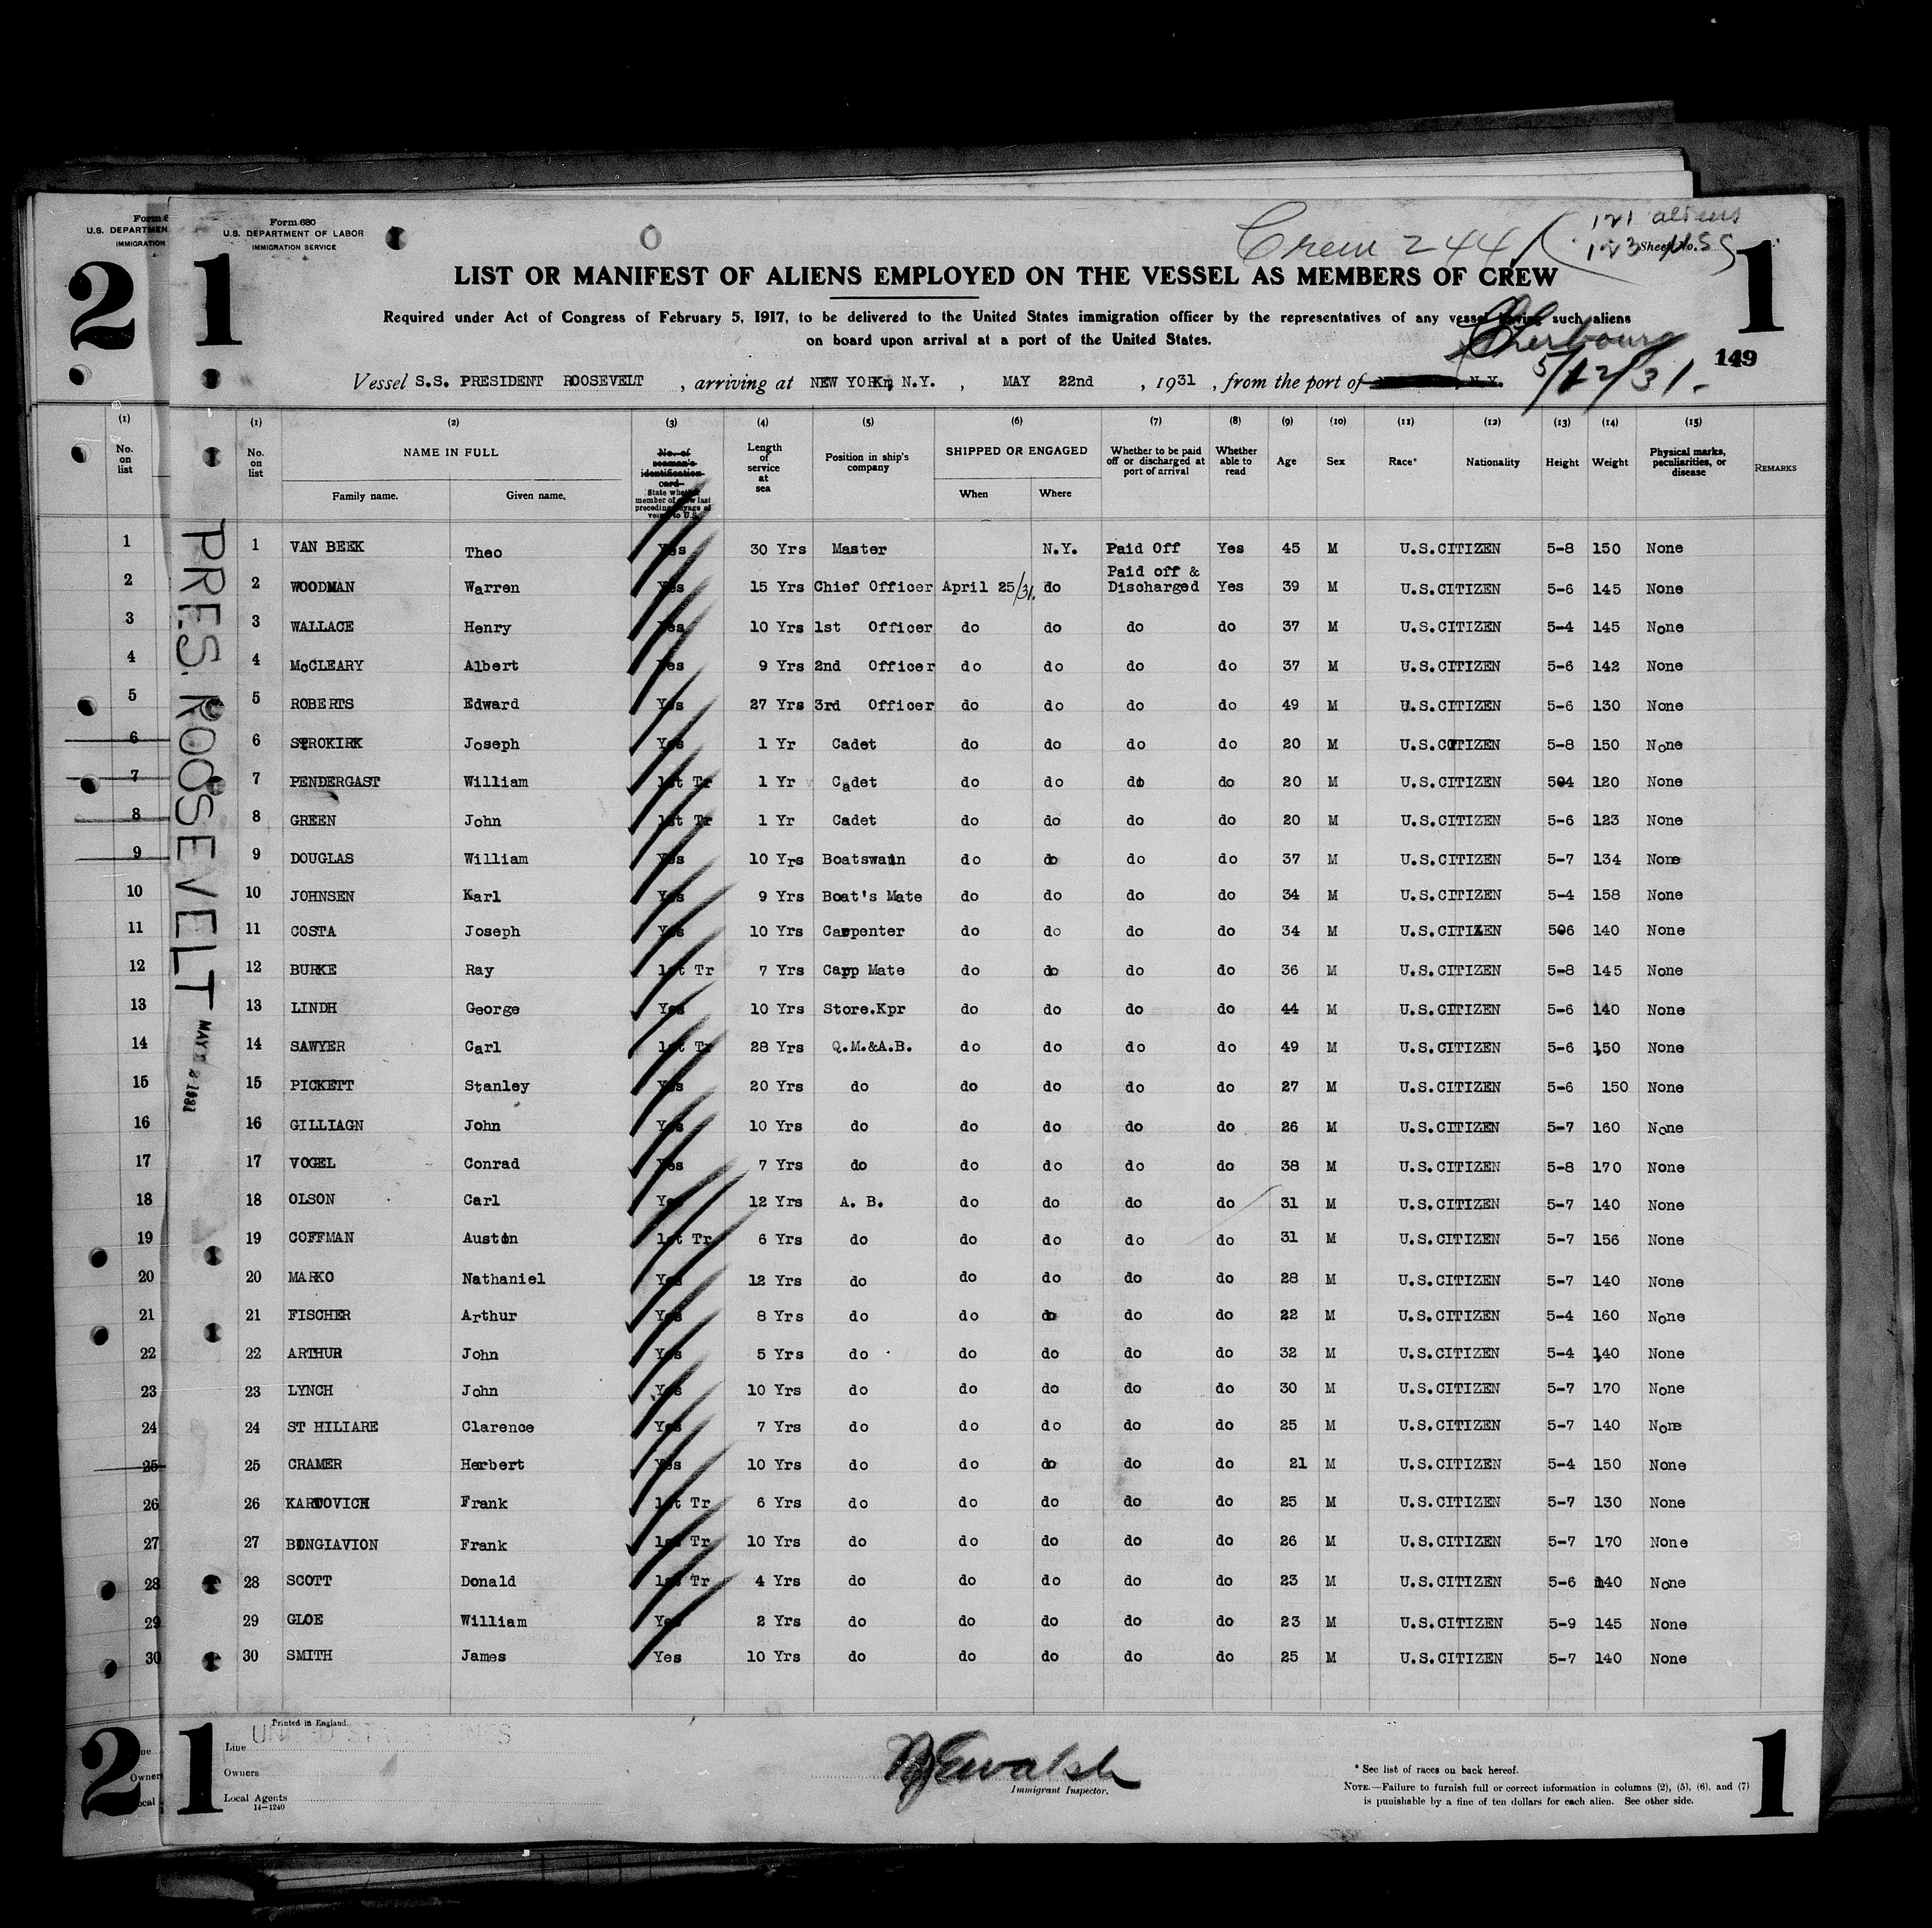 Form 680
U.S. DEPARTMENT OF LABOR
IMMIGRATION SERVICE
Crew 244 ( 121 aliens
123 USS )
Sheet No.
2 1 1
LIST OR MANIFEST OF ALIENS EMPLOYED ON THE VESSEL AS MEMBERS OF CREW
Required under Act of Congress of February 5, 1917, to be delivered to the United States immigration officer by the representatives of any vessel having such aliens
on board upon arrival at a port of the United States.
Cherbourg
149
Vessel S.S. PRESIDENT ROOSEVELT, arriving at NEW YORK, N.Y., MAY 22nd, 1931, from the port of N.Y. 5/12/31.
(1) (2) (3) (4) (5) (6) (7) (8) (9) (10) (11) (12) (13) (14) (15)
No. on list NAME IN FULL Family name. Given name. No. of seaman's identification card State whether member of crew last preceding voyage of vessel to U.S. Length of service at sea Position in ship's company SHIPPED OR ENGAGED When Where Whether to be paid off or discharged at port of arrival Whether able to read Age Sex Race* Nationality Height Weight Physical marks, peculiarities, or disease REMARKS
1 VAN BEEK Theo Yes 30 Yrs Master N.Y. Paid Off Yes 45 M U.S.CITIZEN 5-8 150 None
2 WOODMAN Warren Yes 15 Yrs Chief Officer April 25/31. do Paid off & Discharged Yes 39 M U.S.CITIZEN 5-6 145 None
3 WALLACE Henry Yes 10 Yrs 1st Officer do do do do 37 M U.S.CITIZEN 5-4 145 None
4 McCLEARY Albert Yes 9 Yrs 2nd Officer do do do do 37 M U.S.CITIZEN 5-6 142 None
5 ROBERTS Edward Yes 27 Yrs 3rd Officer do do do do 49 M U.S.CITIZEN 5-6 130 None
6 Joseph Yes 1 Yr Cadet do do do do 20 M U.S.CITIZEN 5-8 150 None
7 PENDERGAST William 1st Tr 1 Yr Cadet do do do do 20 M U.S.CITIZEN 504 120 None
8 GREEN John 1st Tr 1 Yr Cadet do do do do 20 M U.S.CITIZEN 5-6 123 None
9 DOUGLAS William Yes 10 Yrs Boatswain do do do do 37 M U.S.CITIZEN 5-7 134 None
10 JOHNSEN Karl Yes 9 Yrs Boat's Mate do do do do 34 M U.S.CITIZEN 5-4 158 None
11 COSTA Joseph Yes 10 Yrs Carpenter do do do do 34 M U.S.CITIZEN 506 140 None
12 BURKE Ray 1st Tr 7 Yrs Carp Mate do do do do 36 M U.S.CITIZEN 5-8 145 None
13 LINDH George Yes 10 Yrs Store.Kpr do do do do 44 M U.S.CITIZEN 5-6 140 None
14 SAWYER Carl 1st Tr 28 Yrs Q.M.&A.B. do do do do 49 M U.S.CITIZEN 5-6 150 None
15 PICKETT Stanley Yes 20 Yrs do do do do do 27 M U.S.CITIZEN 5-6 150 None
16 GILLIAGN John Yes 10 Yrs do do do do do 26 M U.S.CITIZEN 5-7 160 None
17 VOGEL Conrad Yes 7 Yrs do do do do do 38 M U.S.CITIZEN 5-8 170 None
18 OLSON Carl Yes 12 Yrs A. B. do do do do 31 M U.S.CITIZEN 5-7 140 None
19 COFFMAN Austin 1st Tr 6 Yrs do do do do do 31 M U.S.CITIZEN 5-7 156 None
20 MARKO Nathaniel Yes 12 Yrs do do do do do 28 M U.S.CITIZEN 5-7 140 None
21 FISCHER Arthur Yes 8 Yrs do do do do do 22 M U.S.CITIZEN 5-4 160 None
22 ARTHUR John Yes 5 Yrs do do do do do 32 M U.S.CITIZEN 5-4 140 None
23 LYNCH John Yes 10 Yrs do do do do do 30 M U.S.CITIZEN 5-7 170 None
24 ST HILIARE Clarence Yes 7 Yrs do do do do do 25 M U.S.CITIZEN 5-7 140 None
25 CRAMER Herbert Yes 10 Yrs do do do do do 21 M U.S.CITIZEN 5-4 150 None
26 Frank 1st Tr 6 Yrs do do do do do 25 M U.S.CITIZEN 5-7 130 None
27 BONGIAVION Frank 1st Tr 10 Yrs do do do do do 26 M U.S.CITIZEN 5-7 170 None
28 SCOTT Donald 1st Tr 4 Yrs do do do do do 23 M U.S.CITIZEN 5-6 140 None
29 GLOE William Yes 2 Yrs do do do do do 23 M U.S.CITIZEN 5-9 145 None
30 SMITH James Yes 10 Yrs do do do do do 25 M U.S.CITIZEN 5-7 140 None
PRES. ROOSEVELT MAY 22 1931
Printed in England.
Line UNITED STATES LINES
Owners
Local Agents
14-1240
Immigrant Inspector.
* See list of races on back hereof.
NOTE.—Failure to furnish full or correct information in columns (2), (5), (6), and (7)
is punishable by a fine of ten dollars for each alien. See other side.
2 1 1